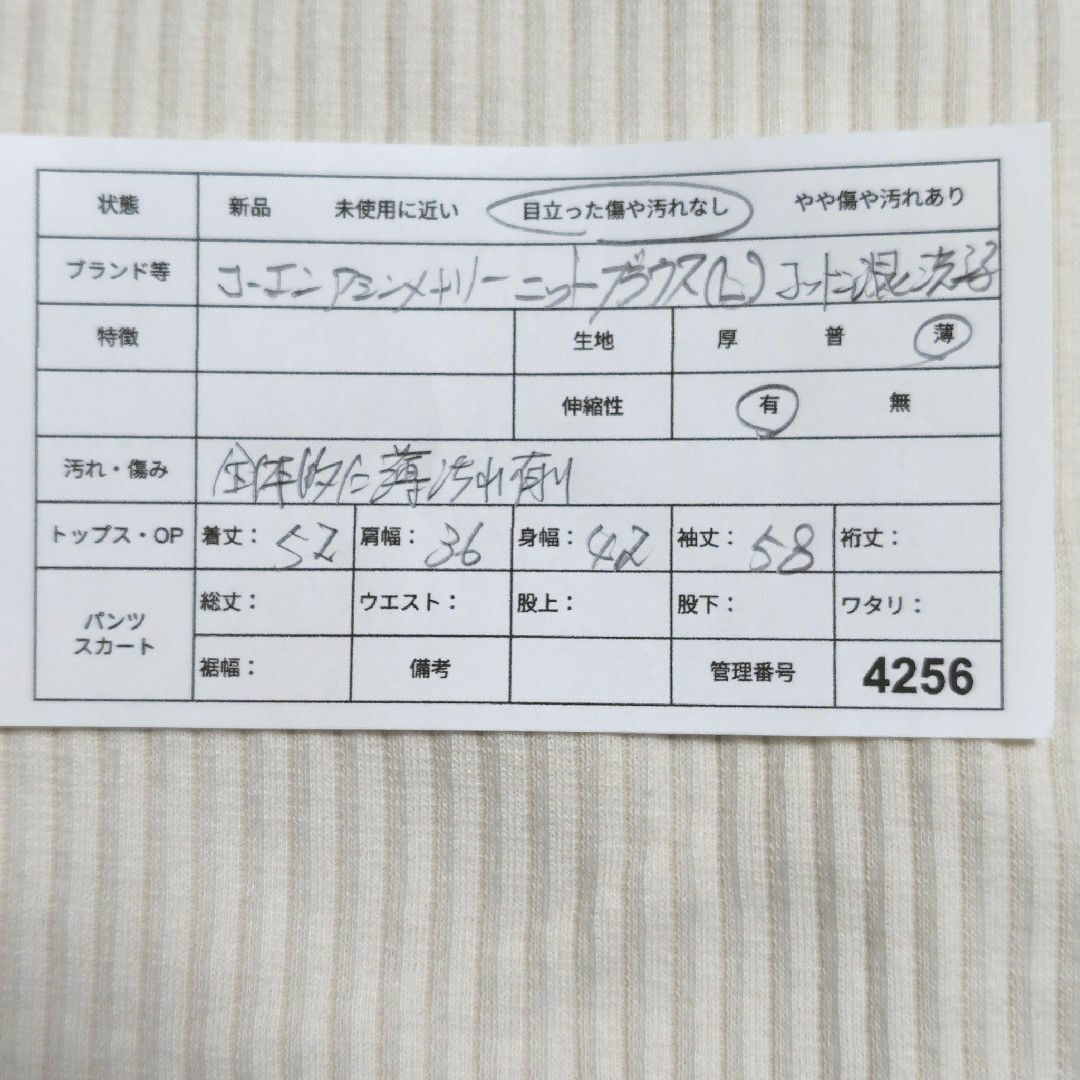 状態 新品 未使用に近い 目立った傷や汚れなし やや傷や汚れあり
ブランド等 コーエン アシンメトリー ニットブラウス(L) コットン混 洗
特徴 生地 厚 普 薄
伸縮性 有 無
汚れ・傷み 全体的に薄汚れ有り
トップス・OP 着丈: 52 肩幅: 36 身幅: 42 袖丈: 58 裄丈:
パンツ スカート
総丈: ウエスト: 股上: 股下: ワタリ:
裾幅: 備考 管理番号 4256